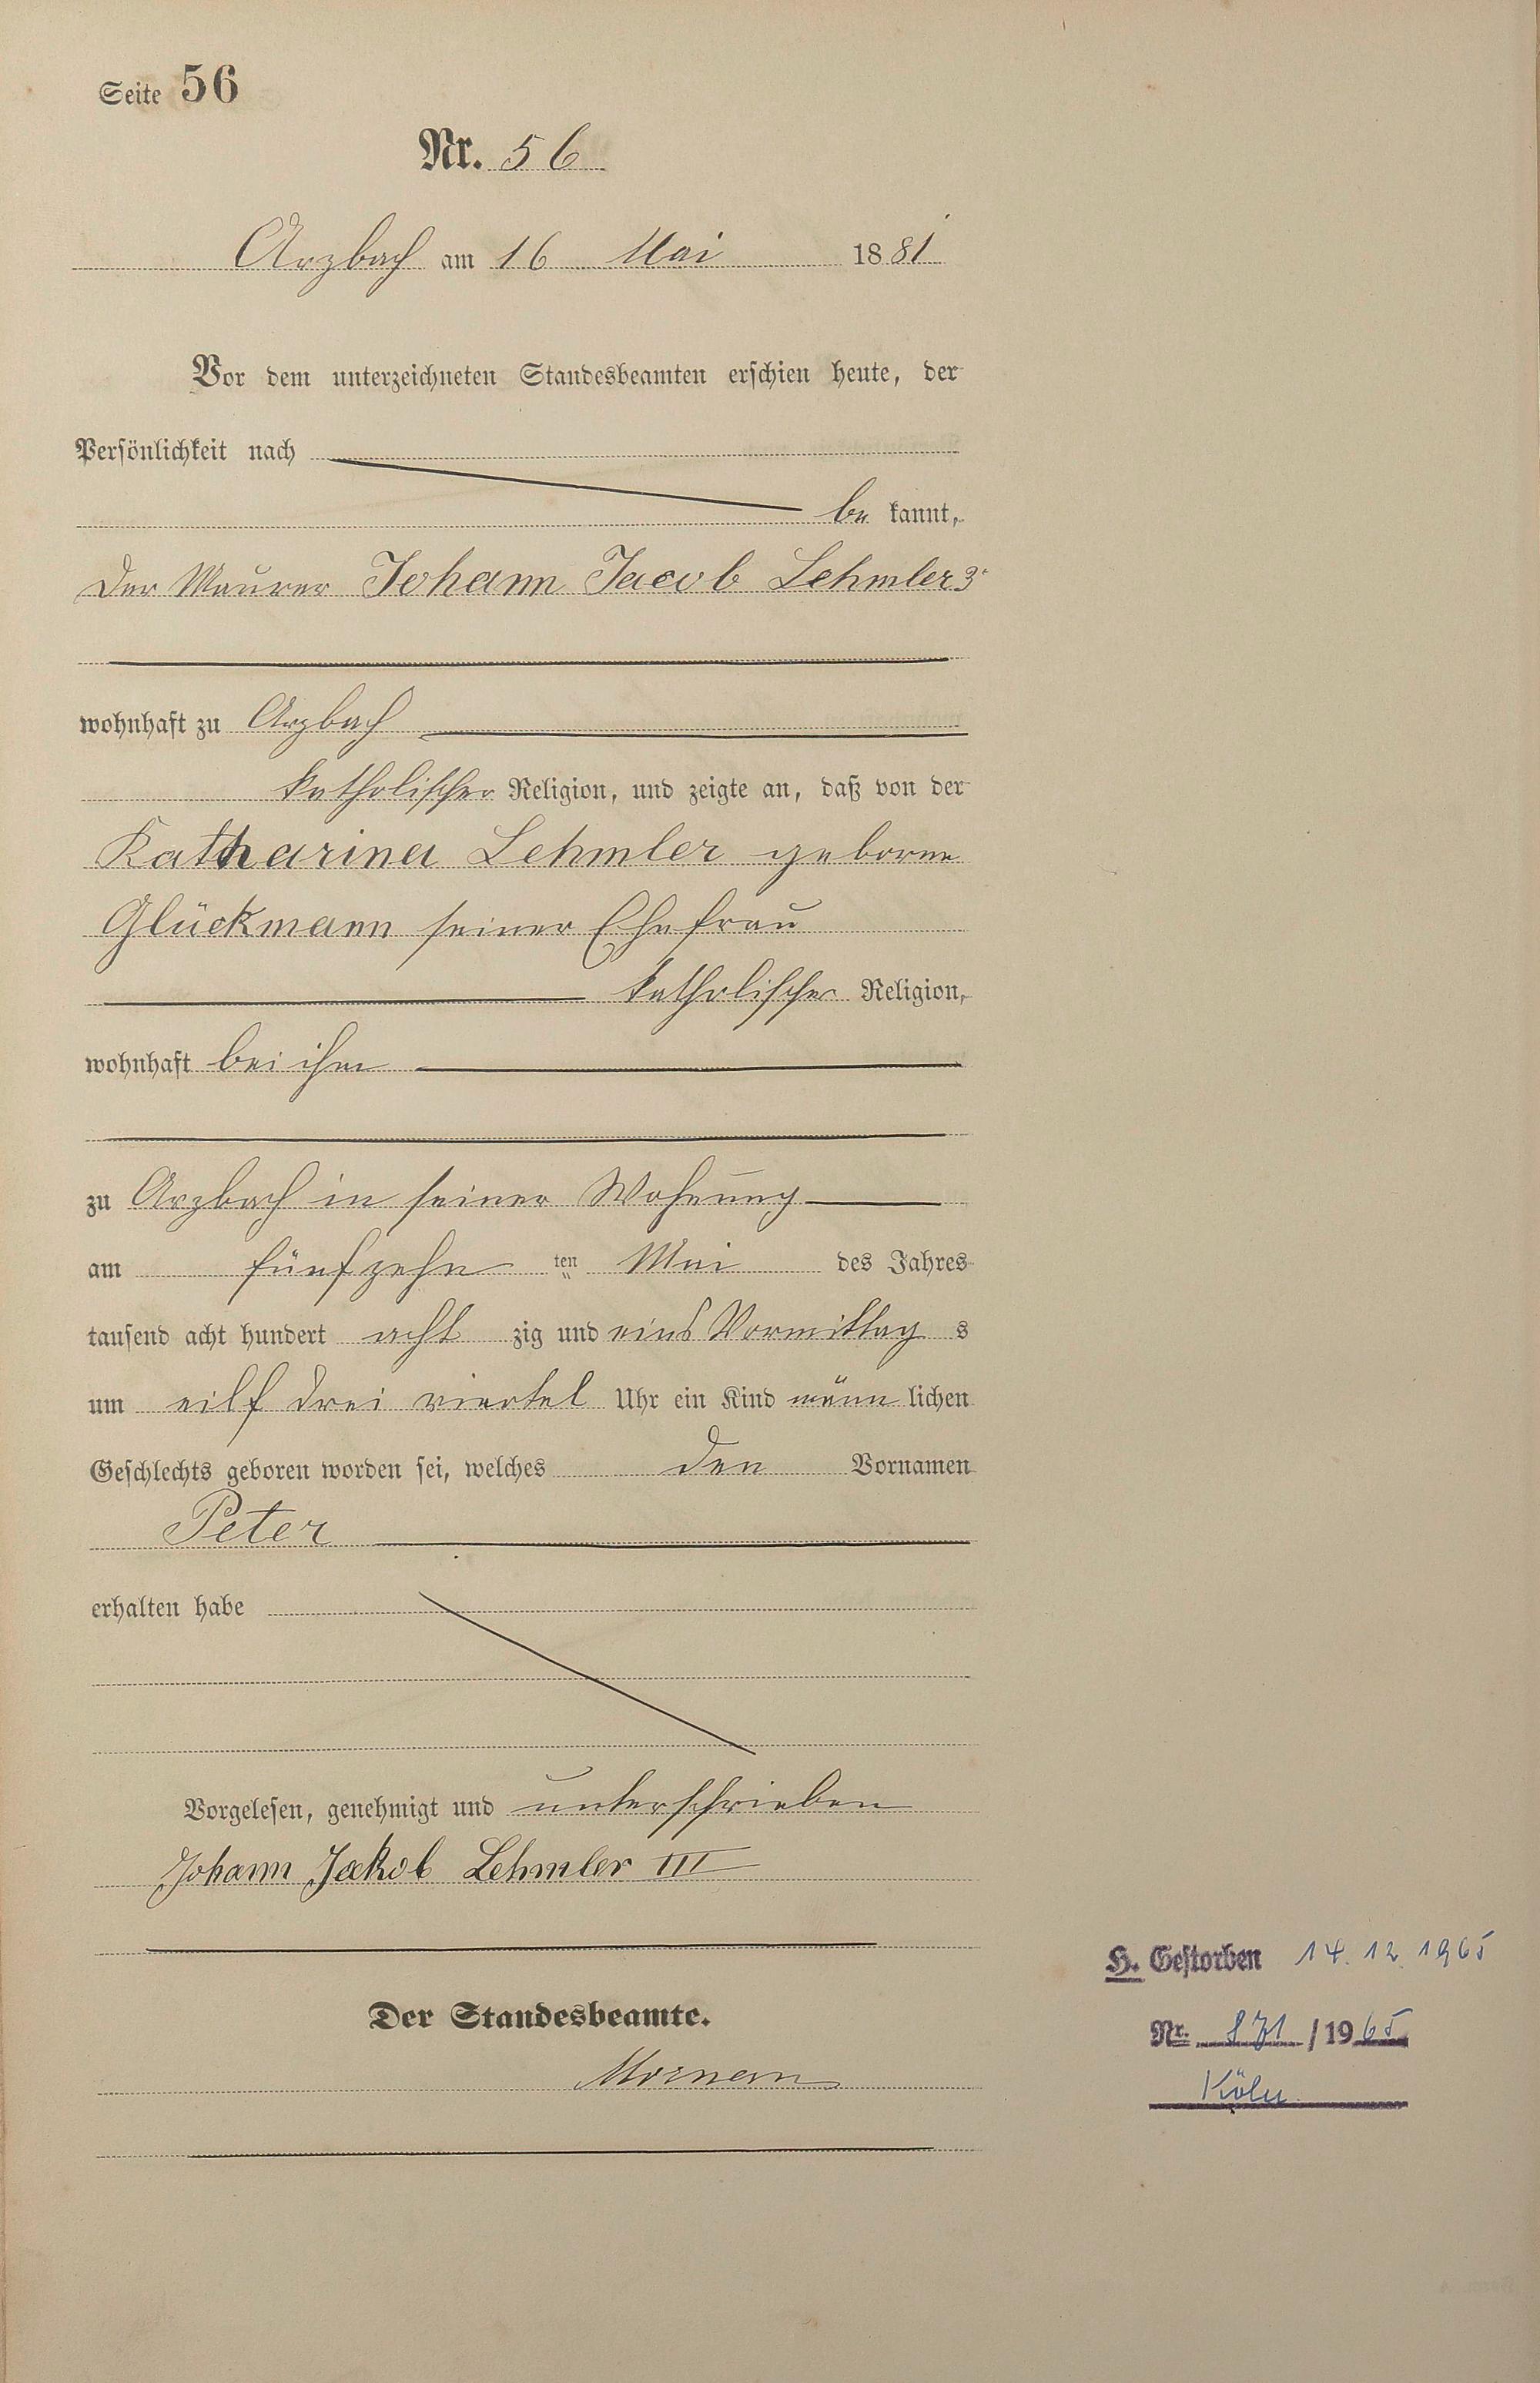 Seite 56
Nr. 56
Arzbach am 16 Mai 1881
Vor dem unterzeichneten Standesbeamten erschien heute, der
Persönlichkeit nach
be kannt,
der Maurer Johann Jacob Lehmler 3r
wohnhaft zu Arzbach
katholischer Religion, und zeigte an, daß von der
Katharina Lehmler geborne
Glückmann seiner Ehefrau
katholischer Religion,
wohnhaft bei ihm
zu Arzbach in seiner Wohnung
am fünfzehn ten Mai des Jahres
tausend acht hundert acht zig und eins Vormittag s
um eilf drei viertel Uhr ein Kind männ lichen
Geschlechts geboren worden sei, welches den Vornamen
Peter
erhalten habe
Vorgelesen, genehmigt und unterschrieben
Johann Jakob Lehmler III
Der Standesbeamte.
H. Gestorben 14. 12. 1965
Nr. 871 / 1965
Köln